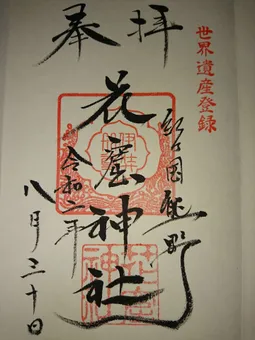 世界遺産登録
奉拝
紀国熊野
花窟神社
令和二年
八月三十日